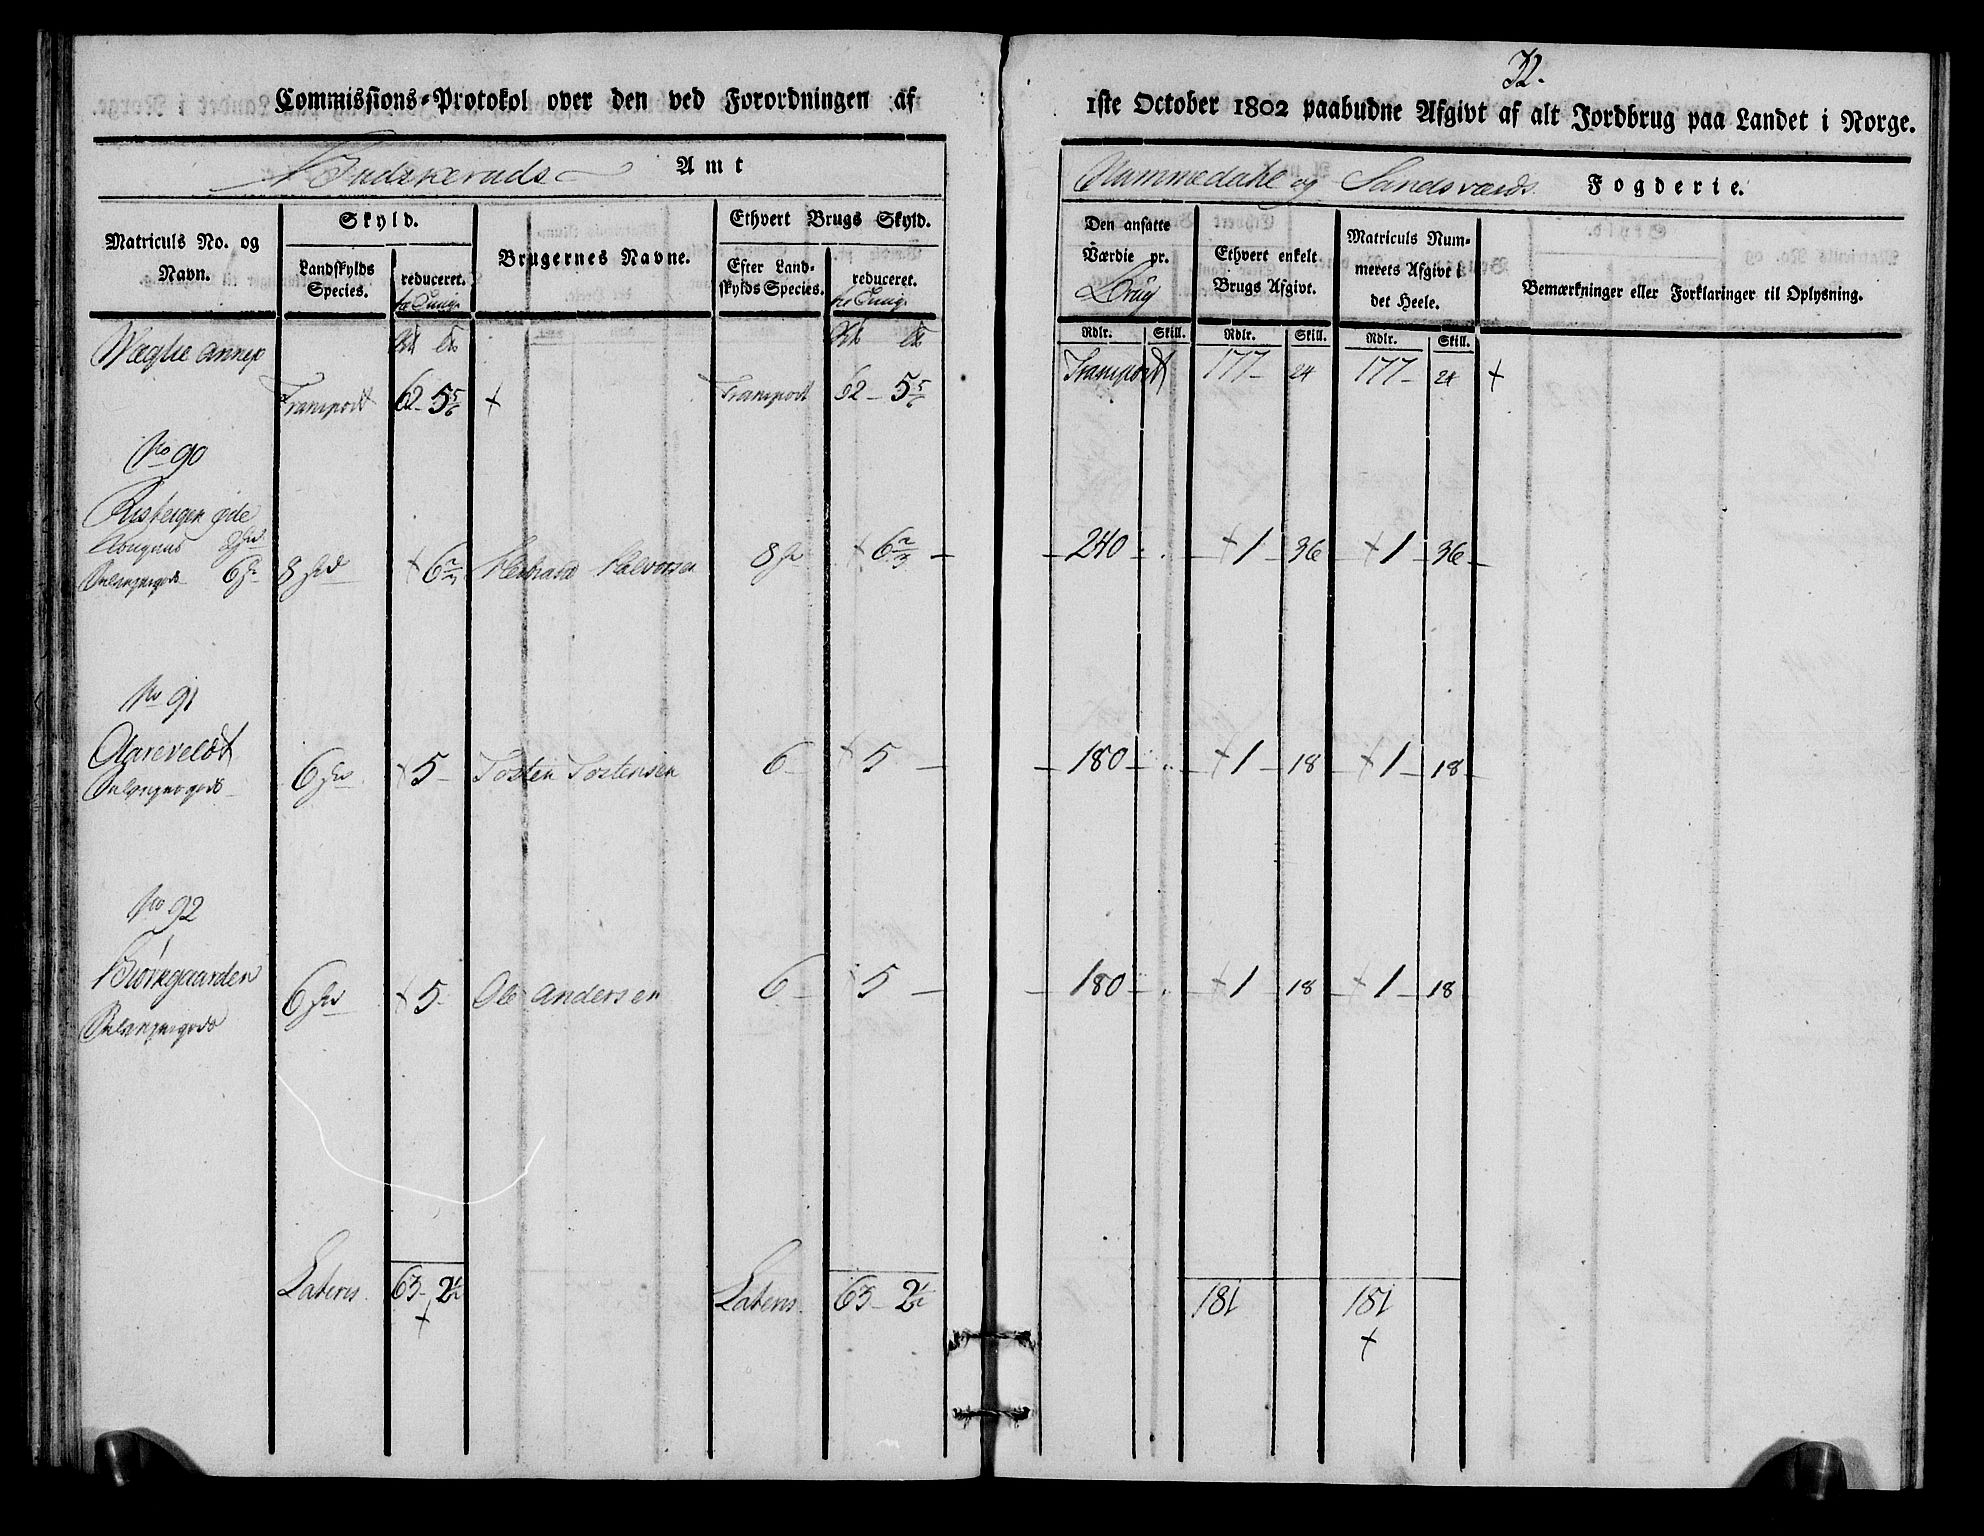 Commissions-Protokol over den ved Forordningen af
Budskeruds Amt
Matriculs No. og Navn.
Skyld.
Landskylds Species.
reduceret.
Brugernes Navne.
Ethvert Brugs Skyld.
Efter Landskylds Species.
reduceret.
Wæglie annex
Transport 62 - 5 5/6 + Transport 62 - 5 5/6
No 90
øde
8 + 6 2/3 Halvorsen 8 + 6 2/3 -
No 91
6 + 5 - Tosten Tostensen 6 - + 5 -
No 92
Biørkgaarden
6 + 5 - Ole Andersen 6 - + 5 -
Lateris 63 - 2 1/2 Lateris 63 - 2 1/2
+
32.
1ste October 1802 paabudne Afgivt af alt Jordbrug paa Landet i Norge.
Nummedahl og Sandsværds Fogderie.
Den ansatte Værdie pr. Brug
Ethvert enkelt Brugs Afgivt.
Matriculs Nummerets Afgivt i det Heele.
Bemærkninger eller Forklaringer til Oplysning.
Rdlr. Skill. Rdlr. Skill. Rdlr. Skill.
Transport 177 - 24 177 - 24 +
- 240 - - + 1 - 36 + 1 - 36 -
- 180 - - + 1 - 18 - + 1 - 18 -
- 180 - - + 1 - 18 - + 1 - 18
181 181
+